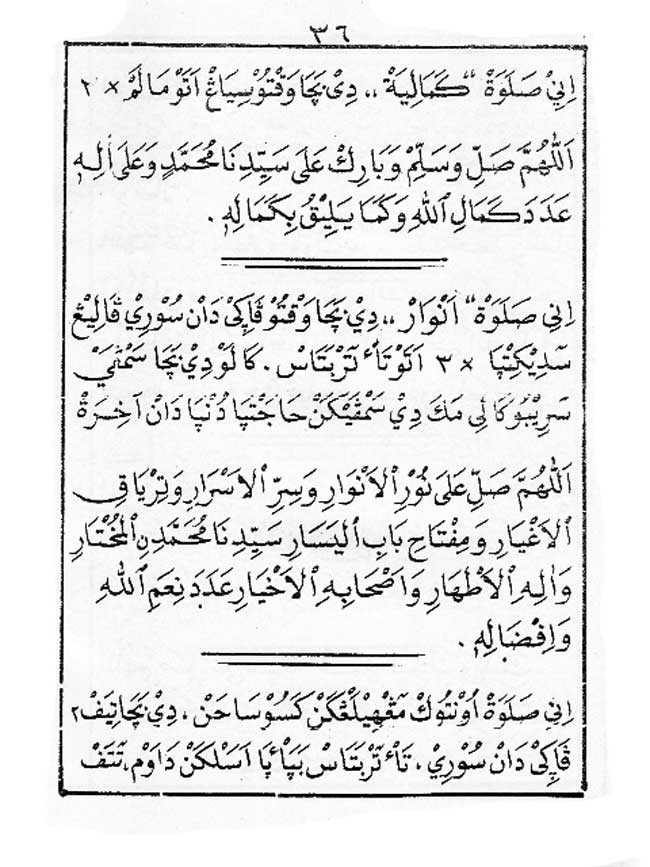 ٣٦
اِنِيْ صَلَوَةْ ‟كَمَالِيَةْ،، دِيْ بَچَا وَقْتُوْ سِيَاڠْ اَتَوْ مَالَمْ × ٢
اَللّٰهُمَّ صَلِّ وَسَلِّمْ وَبَارِكْ عَلَى سَيِّدِنَا مُحَمَّدٍ وَعَلَى اٰلِهِ
عَدَدَ كَمَالِ اللهِ وَكَمَا يَلِيْقُ بِكَمَالِهِ .
اِنِي صَلَوَةْ ‟اَنْوَارْ،، دِيْ بَچَا وَقْتُوْ ڤَاڮِى دَانْ سُوْرِيْ ڤَالِيْڠْ
سَدِيْكِتْپَا × ٣ اَتَوْ تَأْ تَرْبَتَاسْ. كَالَوْ دِيْ بَچَا سَمْڤَيْ
سَرِيْبُوْ كَالِي مَكَ دِيْ سَمْڤَيْكَنْ حَاجَتْپَا دُنْيَا دَانْ آخِرَةْ
اَللّٰهُمَّ صَلِّ عَلَى نُوْرِ الْاَنْوَارِ وَسِرِّ الْاَسْرَارِ وَتِرْيَاقِ
الْاَغْيَارِ وَمِفْتَاحِ بَابِ الْيَسَارِ سَيِّدِنَا مُحَمَّدِنِ الْمُخْتَارِ
وَاٰلِهِ الْاَطْهَارِ وَاَصْحَابِهِ الْاَخْيَارِ عَدَدَ نِعَمِ اللهِ
وَاِفْضَالِهِ .
اِنِي صَلَوَةْ اُوْنْتُوكْ مَڠْهِيْلَڠْكَنْ كَسُوْسَاحَنْ، دِيْ بَچَا تِيَڤْ٢
ڤَاڮِى دَانْ سُوْرِيْ، تَأْ تَرْبَتَاسْ بَپَأْپَا اَسَلْكَنْ دَاوَمْ، تَتَڤْ